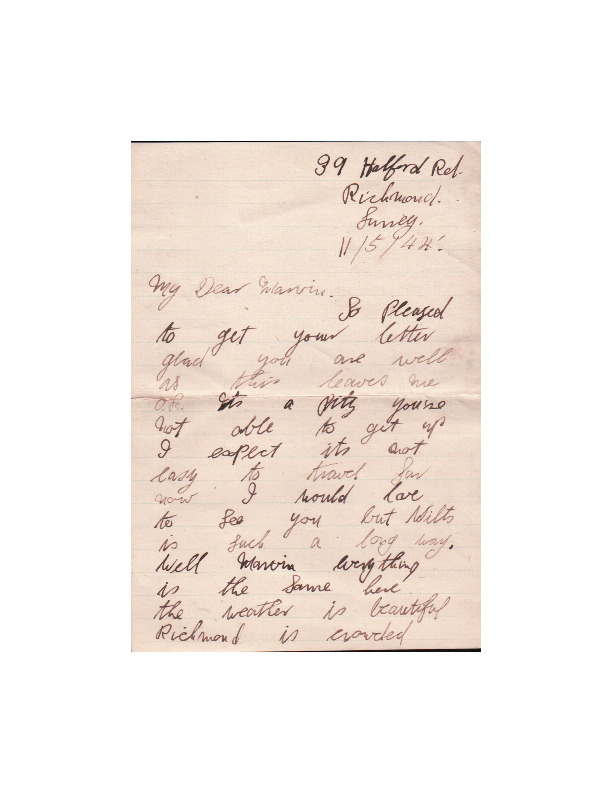 39 Halford Rd.
Richmond.
Surrey.
11/5/44.
My Dear Marvin.
So Pleased
to get your letter
glad you are well
as this leaves me
O.K. its a pity youre
not able to get up
I expect its not
easy to travel far
now I would love
to see you but Wilts
is such a long way.
Well Marvin everything
is the same here
the weather is beautiful
Richmond is crowded